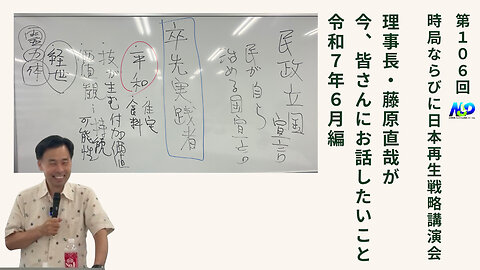 第１０６回
時局ならびに日本再生戦略講演会
理事長・藤原直哉が
今、皆さんにお話したいこと
令和７年６月編
民政立国宣言
民が自ら
治める国宣言。
卒先実践者
・平和
住宅
食料
・技が生む付加価値
・価値観・伝統
可能性
経世
霊力体